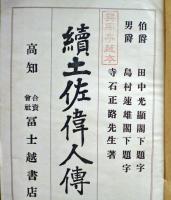 伯爵 田中光顯閣下題字
男爵 島村速雄閣下題字
寺石正路先生著
續土佐偉人傳
高知 合資會社 冨士越書店